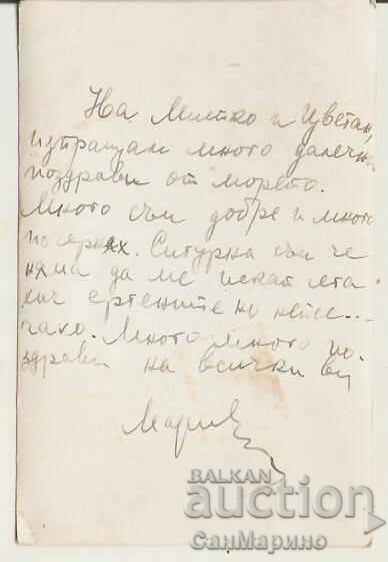 На Митко и Цветан,
изпращам много далечни
поздрави от морето.
Много съм добре и много
почернях. Сигурна съм че
няма да ме искат ета
хич ергените но нейсе...
чако. Много много по-
здрави на всички ви
Мария
BALKAN
auction
СанМарино